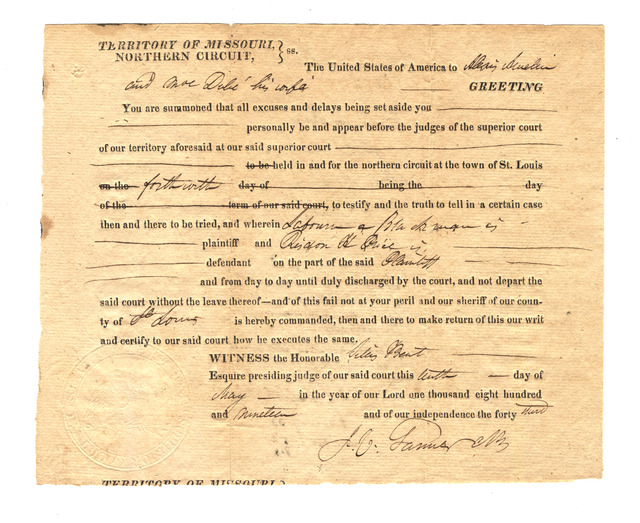 TERRITORY OF MISSOURI, } ss.
NORTHERN CIRCUIT,
The United States of America to Alexis
and his wife GREETING
You are summoned that all excuses and delays being set aside you
personally be and appear before the judges of the superior court
of our territory aforesaid at our said superior court
to be held in and for the northern circuit at the town of St. Louis
on the forthwith day of being the day
of the term of our said court, to testify and the truth to tell in a certain case
then and there to be tried, and wherein a Black man is
plaintiff and Risdon H Price is
defendant on the part of the said Plaintiff
and from day to day until duly discharged by the court, and not depart the
said court without the leave thereof—and of this fail not at your peril and our sheriff of our coun-
ty of St Louis is hereby commanded, then and there to make return of this our writ
and certify to our said court how he executes the same.
WITNESS the Honorable Silas Bent
Esquire presiding judge of our said court this tenth day of
May in the year of our Lord one thousand eight hundred
and nineteen and of our independence the forty third
TERRITORY OF MISSOURI, }